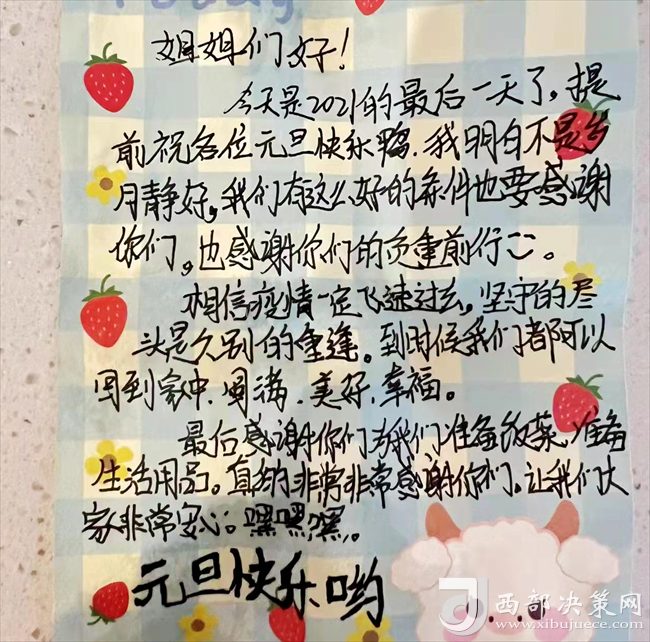 Today
姐姐们好！
今天是2021的最后一天了，提
前祝各位元旦快乐鸭.我明白不是岁
月静好，我们有这么好的条件也要感谢
你们，也感谢你们的负重前行。
相信疫情一定飞速过去，坚守的尽
头是久别的重逢。到时候我们都可以
回到家中.圆满.美好.幸福。
最后感谢你们为我们准备饭菜.准备
生活用品。真的非常非常感谢你们，让我们大
家非常安心。嘿嘿嘿。
元旦快乐哟
西部决策网
www.xibujuece.com